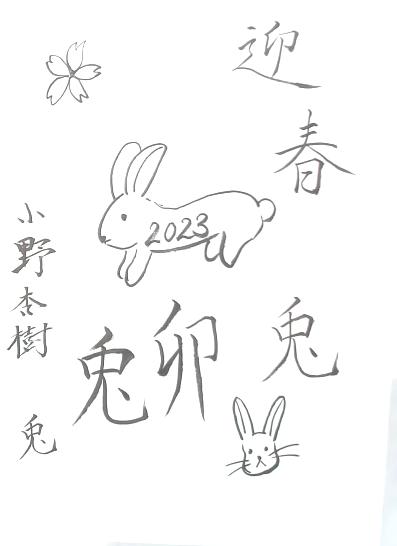 迎春
2023
兎
卯
兎
小野杏樹
兎